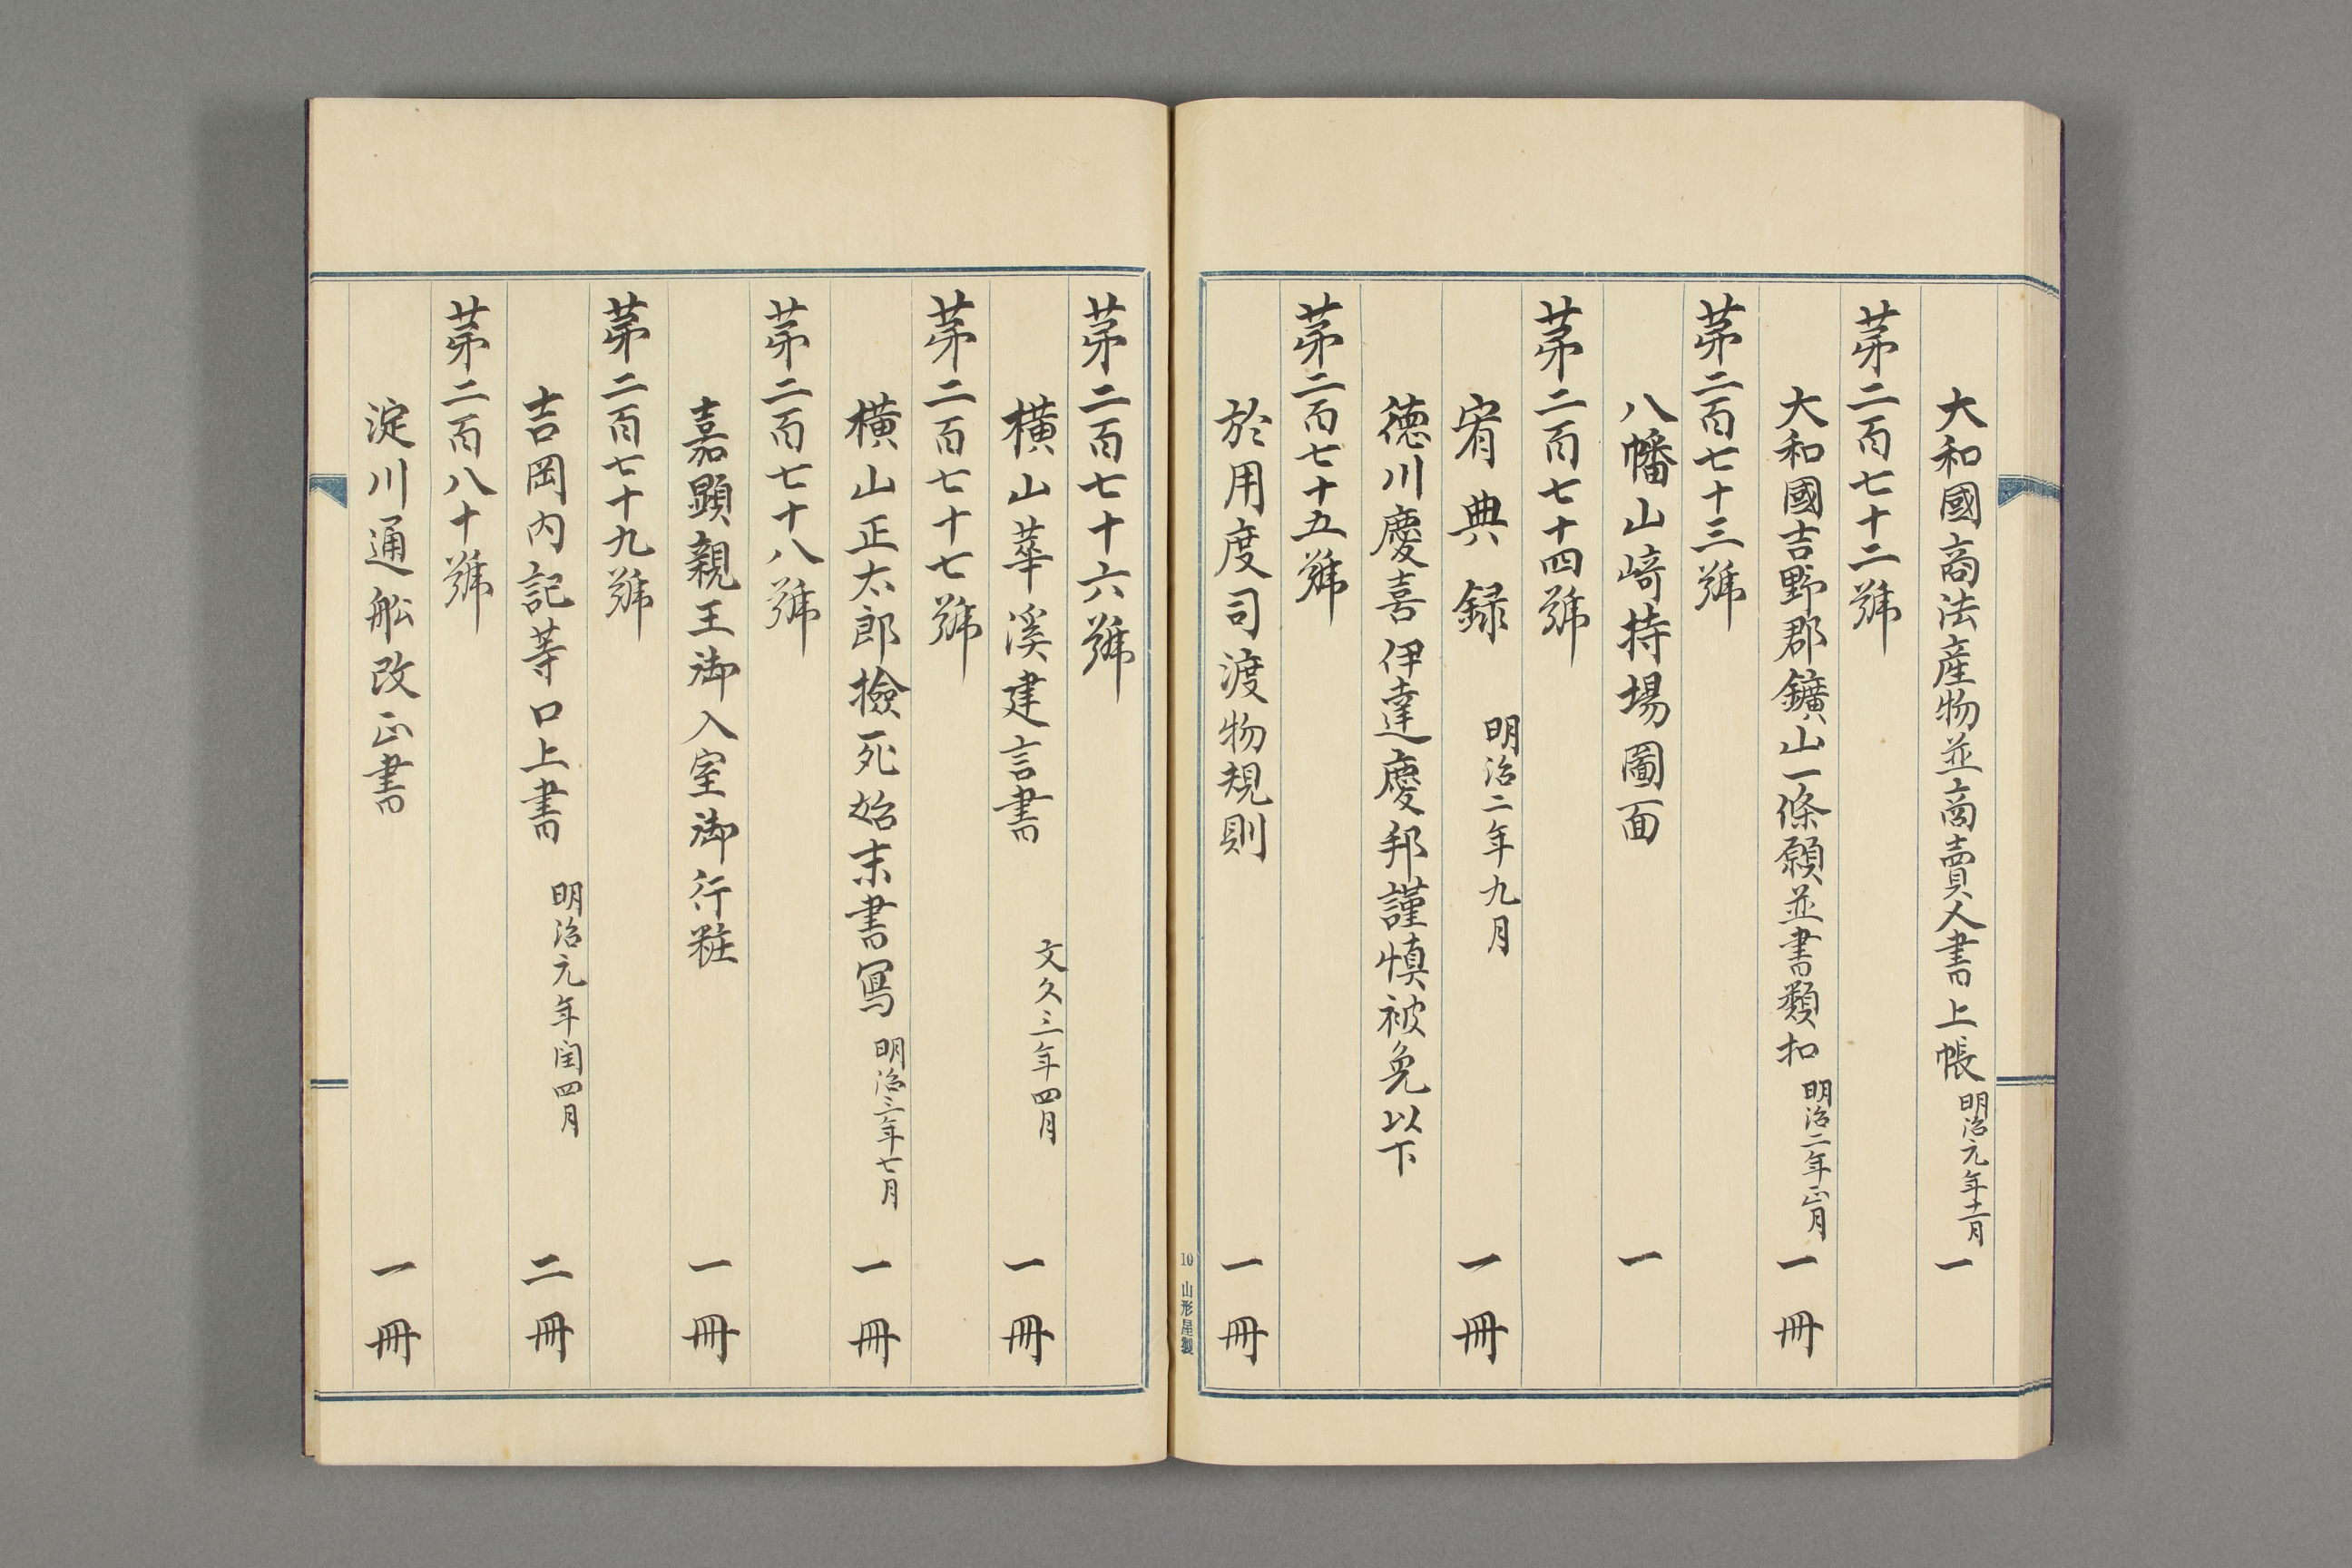 大和國商法産物並商賣人書上帳 明治元年十一月 一
第二百七十二號
大和國吉野郡鑛山一條願並書類扣 明治二年正月 一冊
第二百七十三號
八幡山﨑持場圖面 一
第二百七十四號
宥典録 明治二年九月 一冊
徳川慶喜伊達慶邦謹慎被免以下
第二百七十五號
於用度司渡物規則 一冊
10 山形屋製
第二百七十六號
横山華溪建言書 文久三年四月 一冊
第二百七十七號
横山正太郎撿死始末書寫 明治三年七月 一冊
第二百七十八號
嘉顕親王御入室御行粧 一冊
第二百七十九號
吉岡内記等口上書 明治元年閏四月 二冊
第二百八十號
淀川通舩改正書 一冊